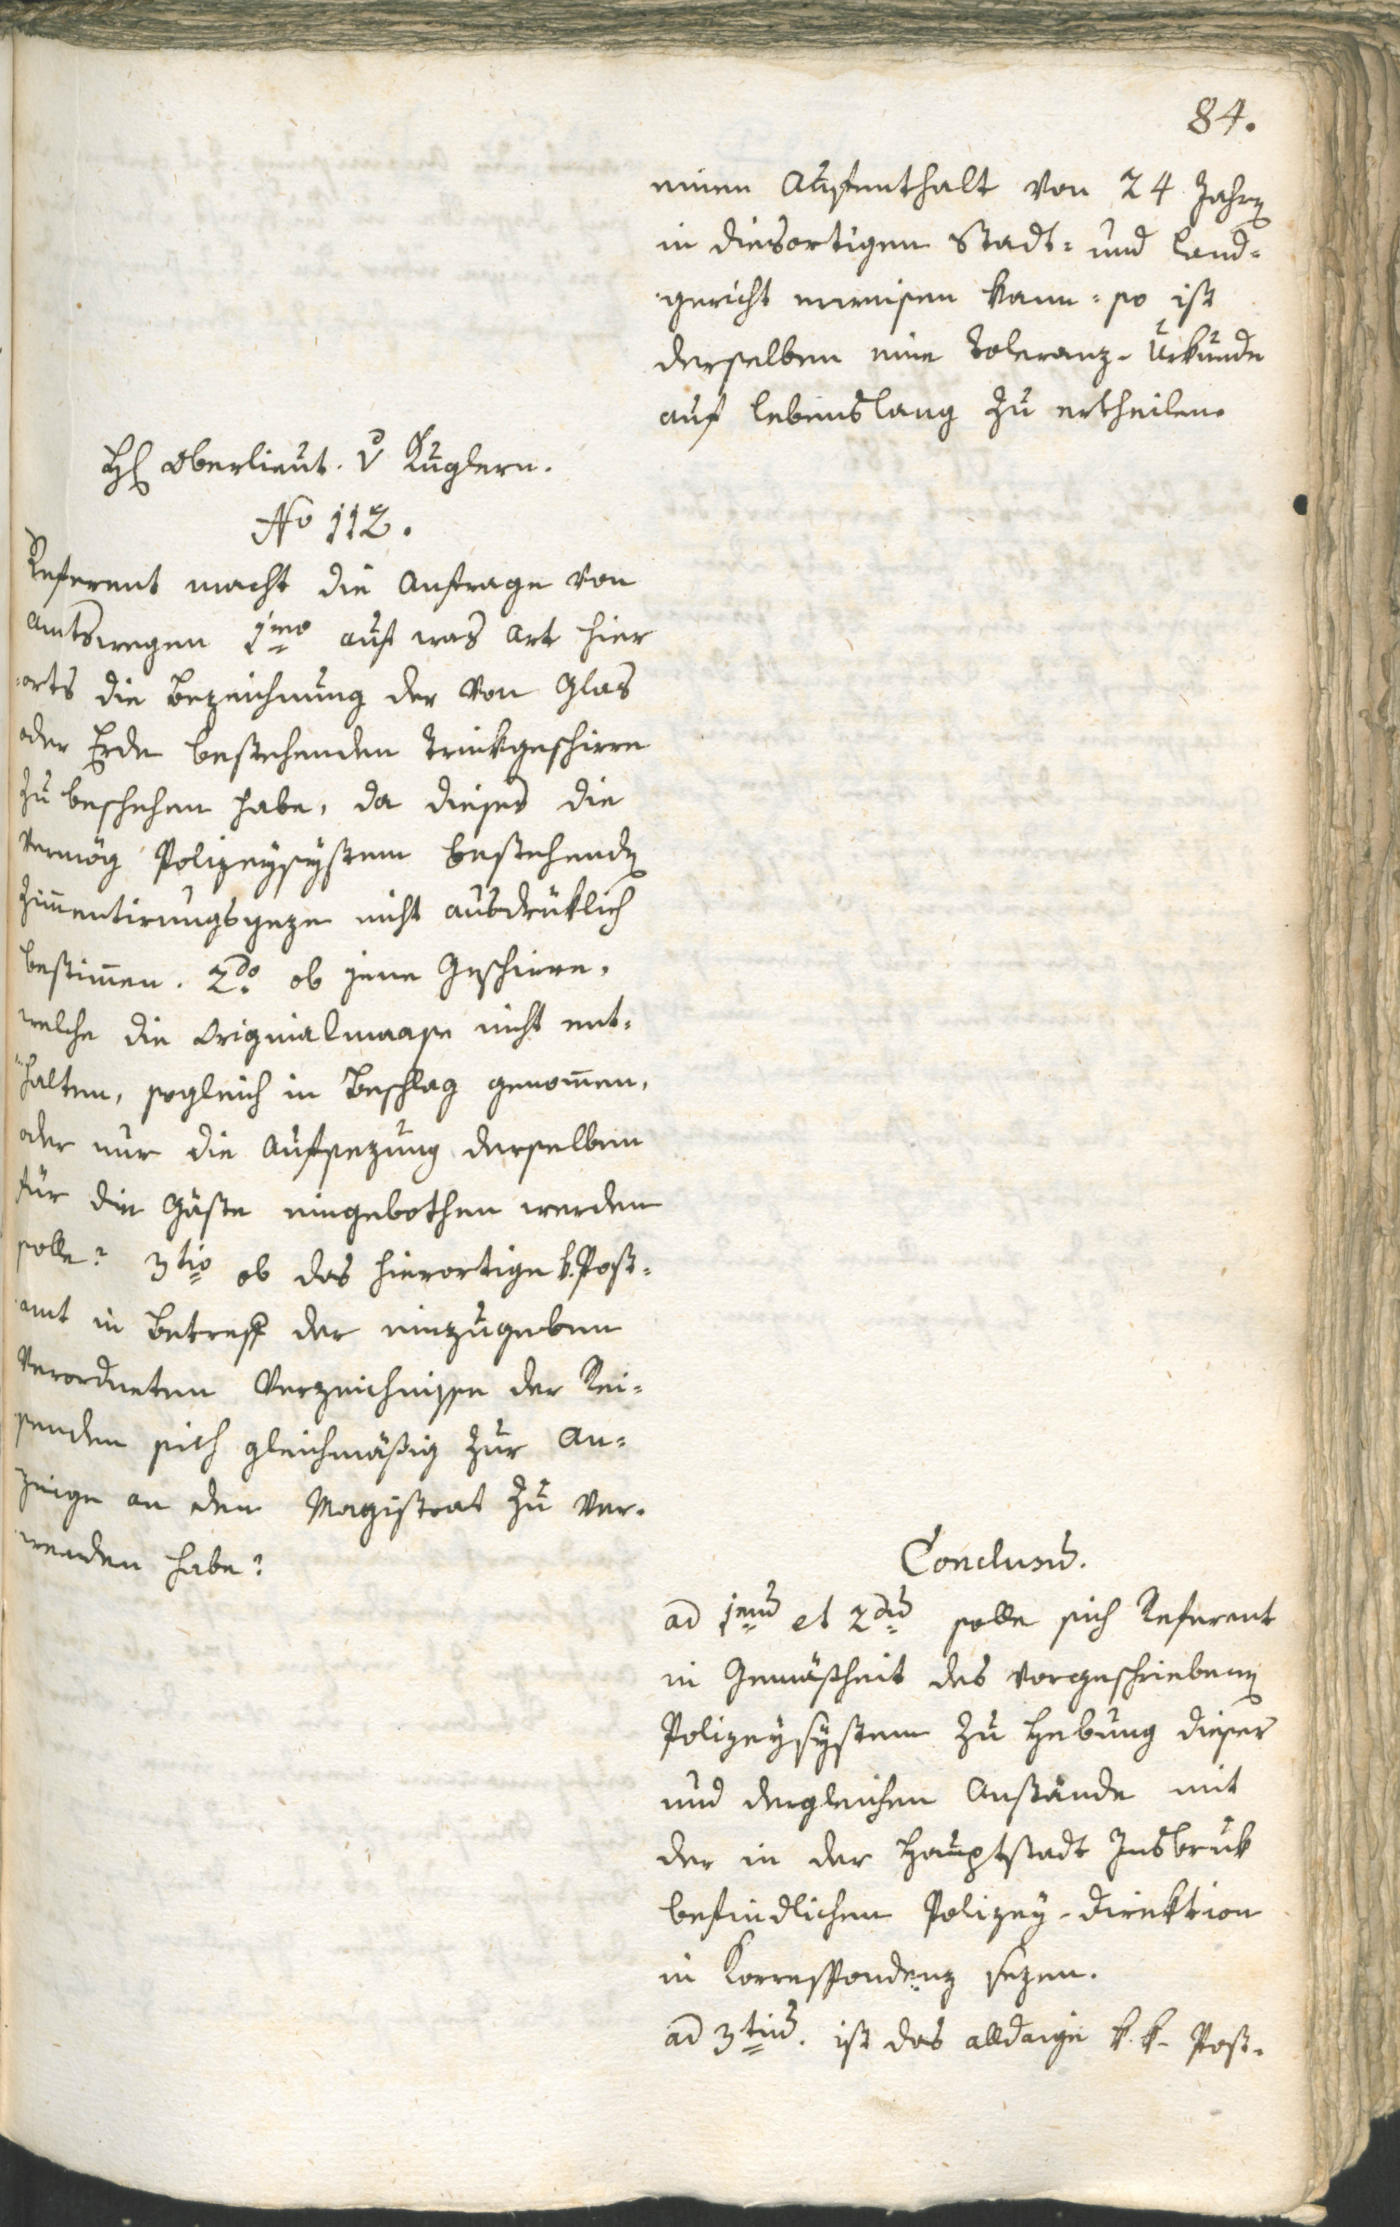 84.
einen Aufenthalt von 24 Jahren
in diesortigem Stadt- und Land-
gericht erweisen kann: so ist
derselben eine Toleranz-Urkunde
auf lebenslang zu ertheilen.
H. Oberlieut. v Kuglern.
No 112.
Referent macht die Anfrage von
Amtswegen 1mo auf was Art hier
orts die Bezeichnung der von Glas
oder Erde bestehenden Trinkgeschirre
zu beschehen habe, da dieses die
vermög Polizeysystem bestehenden
Zimentirungsgeseze nicht ausdrüklich
bestimen. 2do ob jene Geschirre,
welche die Originalmaase nicht ent-
halten, sogleich in Beschlag genomen,
oder nur die Aufsezung derselben
für die Gäste eingebothen werden
solle? 3tio ob das hierortige k. Post-
amt in Betreff der einzugeben
verordneten Verzeichnisse der Rei-
senden sich gleichmäßig zur An-
zeige an den Magistrat zu ver-
wenden habe?
Conclusum.
ad 1mum et 2dum solle sich Referent
in Gemäßheit des vorgeschriebenen
Polizeysystem zu Hebung dieser
und dergleichen Anstände mit
der in der Hauptstadt Insbruk
befindlichen Polizey-Direktion
in Korrespondenz sezen.
ad 3tium. ist das alldaige k. k. Post-